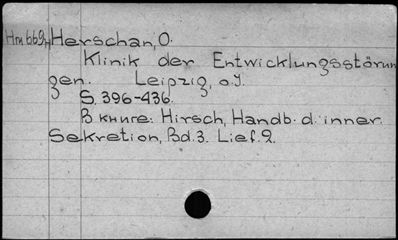 Hm669н Herschan, O.
Klinik der Entwicklungsstörun
gen. Leipzig, o.J.
S. 396-436.
В книге: Hirsch, Handb. d. inner.
Sekretion, Bd. 3. Lief. 2.